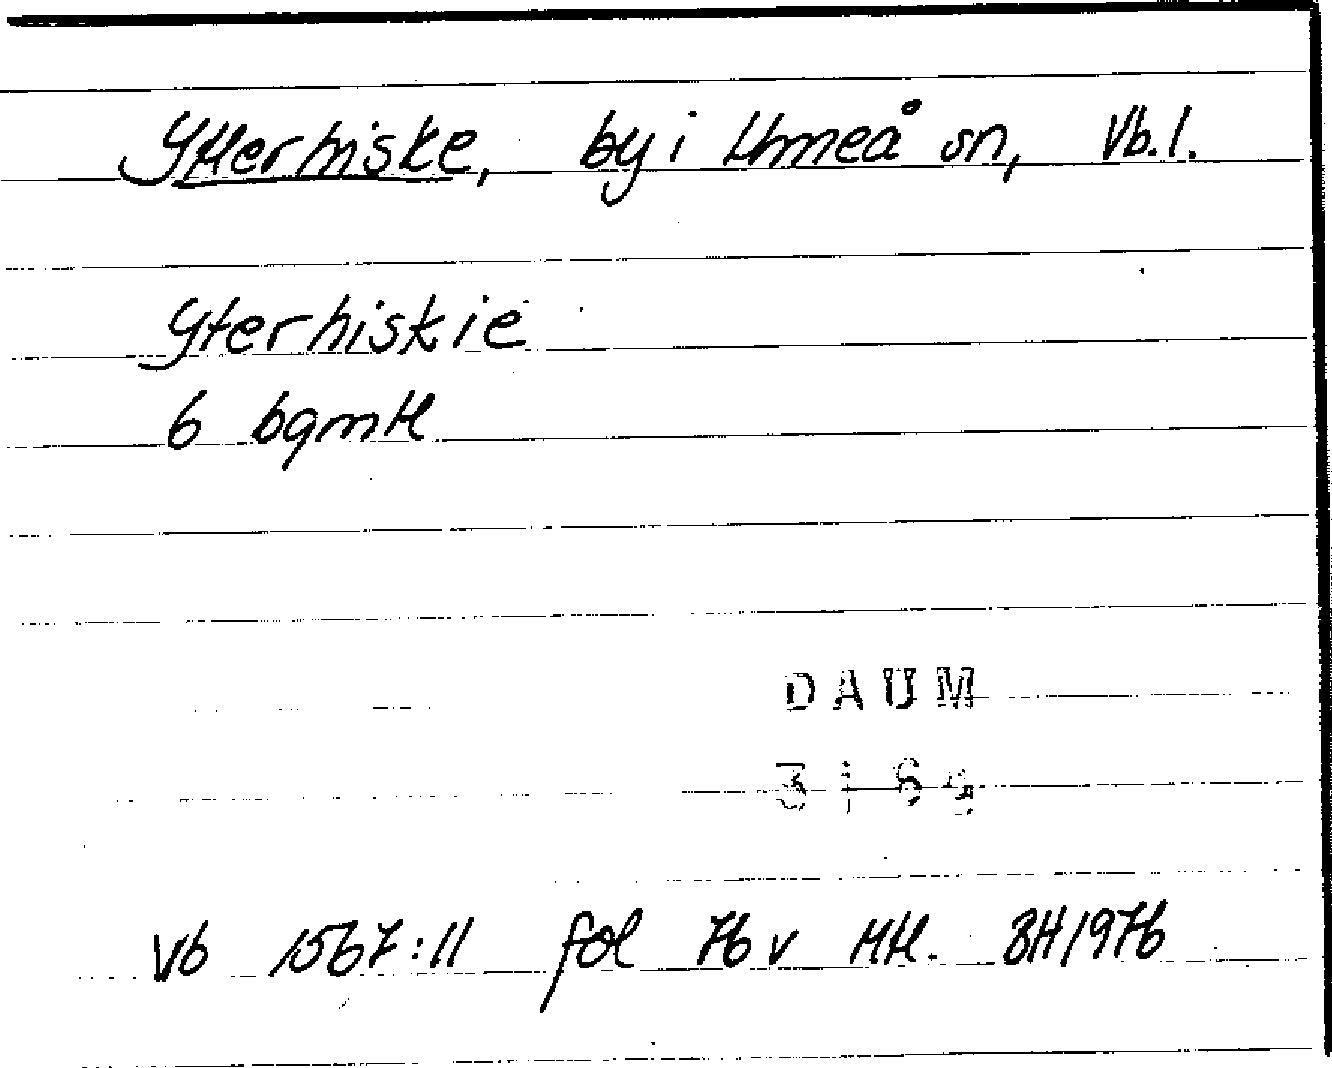 Ytterhiske, by i Umeå sn, Vb.l.
Yterhiskie
6 bgmtl
DAUM
3164
Vb 1567:11 fol 76 v Mtl. BH 1976